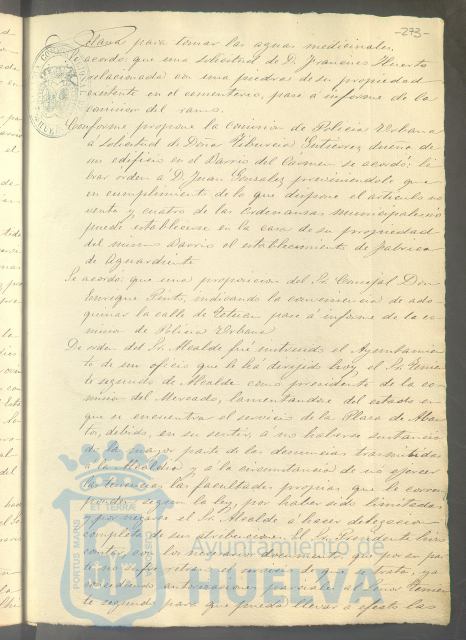 -273-
para tomar las aguas medicinales.
Se acordó: que una solicitud de D. Francisco Huerta
relacionada con una piedra de su propiedad
existente en el cementerio, pase á informe de la
comision del ramo.
Conforme propone la Comision de Policia Urbana
á solicitud de Doña Tiburcia Gutierrez dueña de
un edificio en el Barrio del Carmen se acordó: li
brar orden á D. Juan Gonzalez previniendole que
en cumplimiento de lo que dispone el articulo no
venta y cuatro de las Ordenanzas municipales no
puede establecerse en la casa de su propiedad
del mismo Barrio el establecimiento de fabrica
de Aguardiente.
Se acordó: que una proposicion del Sr. Concejal Don
Enrique indicando la conveniencia de ado
quinar la calle de Tetuan pase á informe de la co
mision de Policia Urbana
De orden del Sr. Alcalde fué enterado el Ayuntamien
to de un oficio que le ha dirigido hoy el Sr. Tenien
te segundo de Alcalde como presidente de la co
mision del Mercado, lamentandose del estado en
que se encuentra el servicio de la Plaza de Abas
tos, debido, en su sentir, á no haberse sustancia
do la mayor parte de las denuncias transmitidas
á la Alcaldia y á la circunstancia de no ejercer
las tenencias las facultades propias que le corres
ponden segun la ley, por haber sido limitadas
y por negarse el Sr. Alcalde á hacer delegacion
completa de sus atribuciones. El Sr. Presidente
con los
el servicio de que se trata, ya
concediendo autorizaciones parciales al Señor Tenien
te segundo para que pueda llevar á efecto las
PORTUS MARIS
ET TERRÆ
Ayuntamiento de
HUELVA